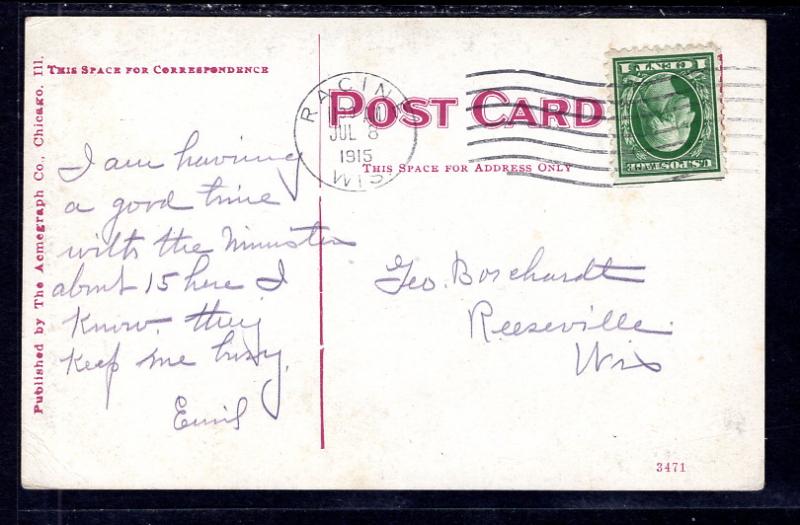 THIS SPACE FOR CORRESPONDENCE
Published by The Acmegraph Co., Chicago. Ill.
POST CARD
THIS SPACE FOR ADDRESS ONLY
RACINE
JUL 8
1915
WIS
1 CENT 1
U.S. POSTAGE
I am having
a good time
with the Ministers
about 15 here I
know. they
keep me busy.
Emil
Geo. Borchardt
Reeseville
Wis
3471